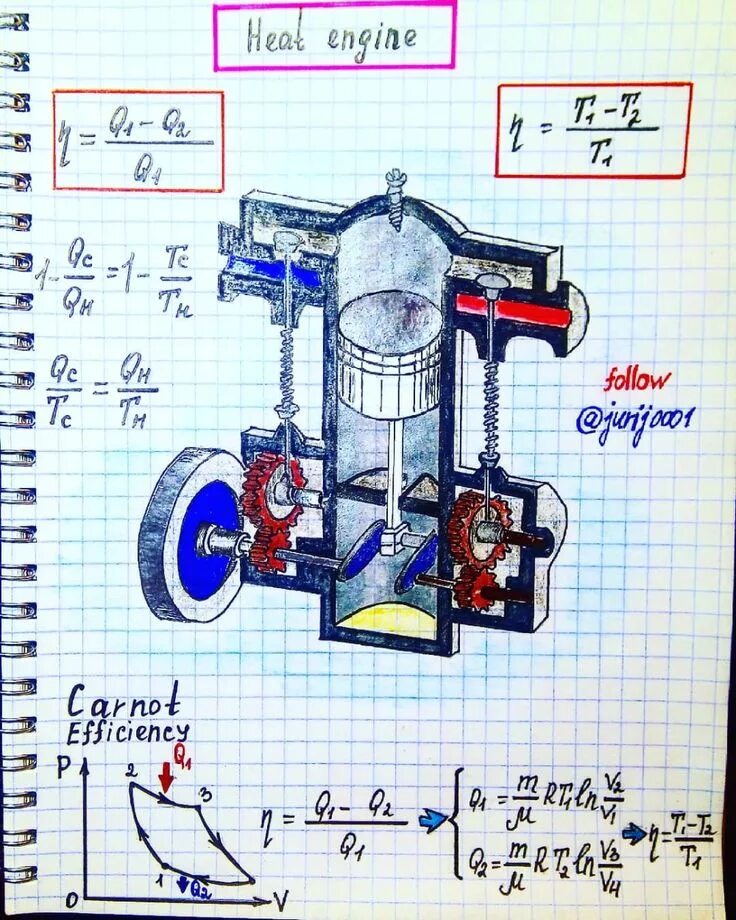 Heat engine
η = (Q₁ - Q₂) / Q₁
η = (T₁ - T₂) / T₁
1 - Qc/Qн = 1 - Tc/Tн
Qc/Tc = Qн/Tн
follow
@jurij0001
Carnot
Efficiency
P
Q₁
2
3
1
Q₂
0
V
η = (Q₁ - Q₂) / Q₁
Q₁ = m/μ RT₁ ln V₂/V₁
Q₂ = m/μ R T₂ ln V₃/V₄
η = (T₁ - T₂) / T₁